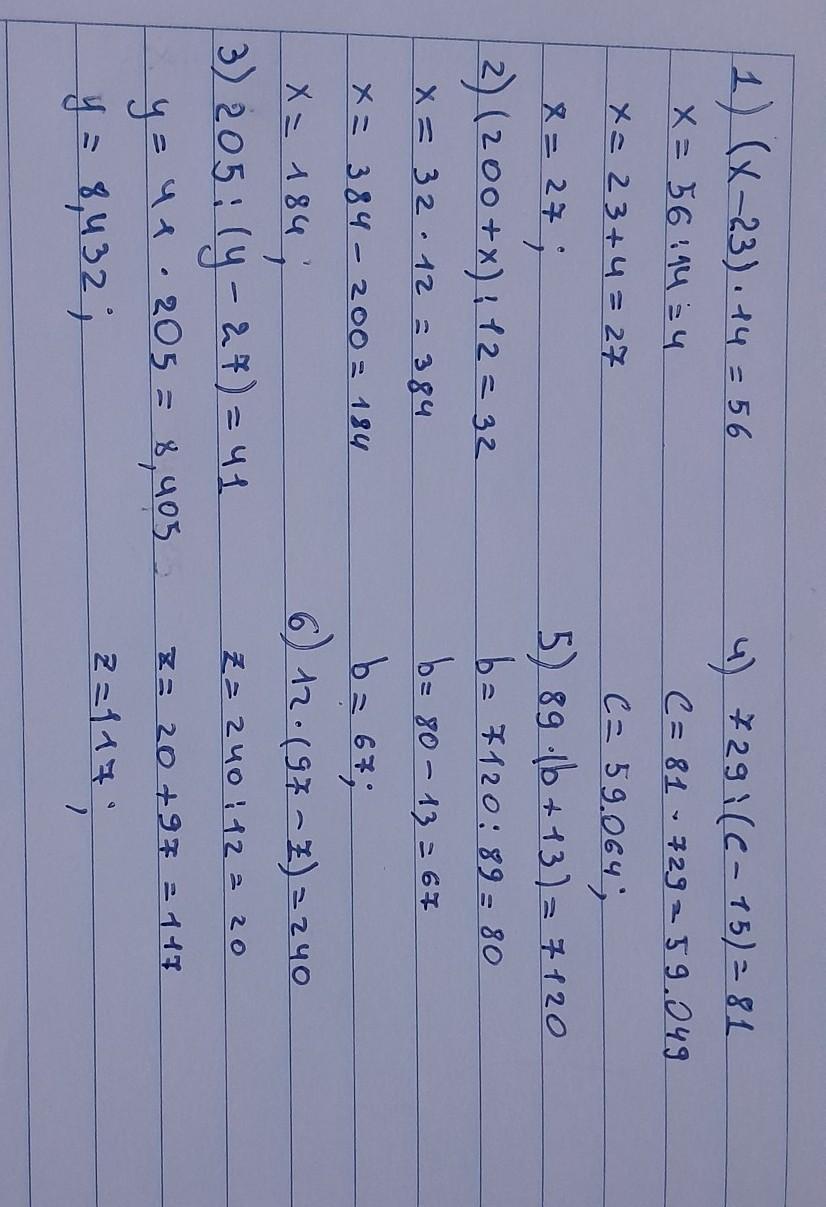 1) (x-23)·14=56
x=56:14=4
x=23+4=27
x=27;
2) (200+x):12=32
x=32·12=384
x=384-200=184
x=184;
3) 205:(y-27)=41
y=41·205=8,405
y=8,432;
4) 729:(c-15)=81
c=81·729=59.049
c=59.064;
5) 89·(b+13)=7120
b=7120:89=80
b=80-13=67
b=67;
6) 12·(97-z)=240
z=240:12=20
z=20+97=117
z=117;